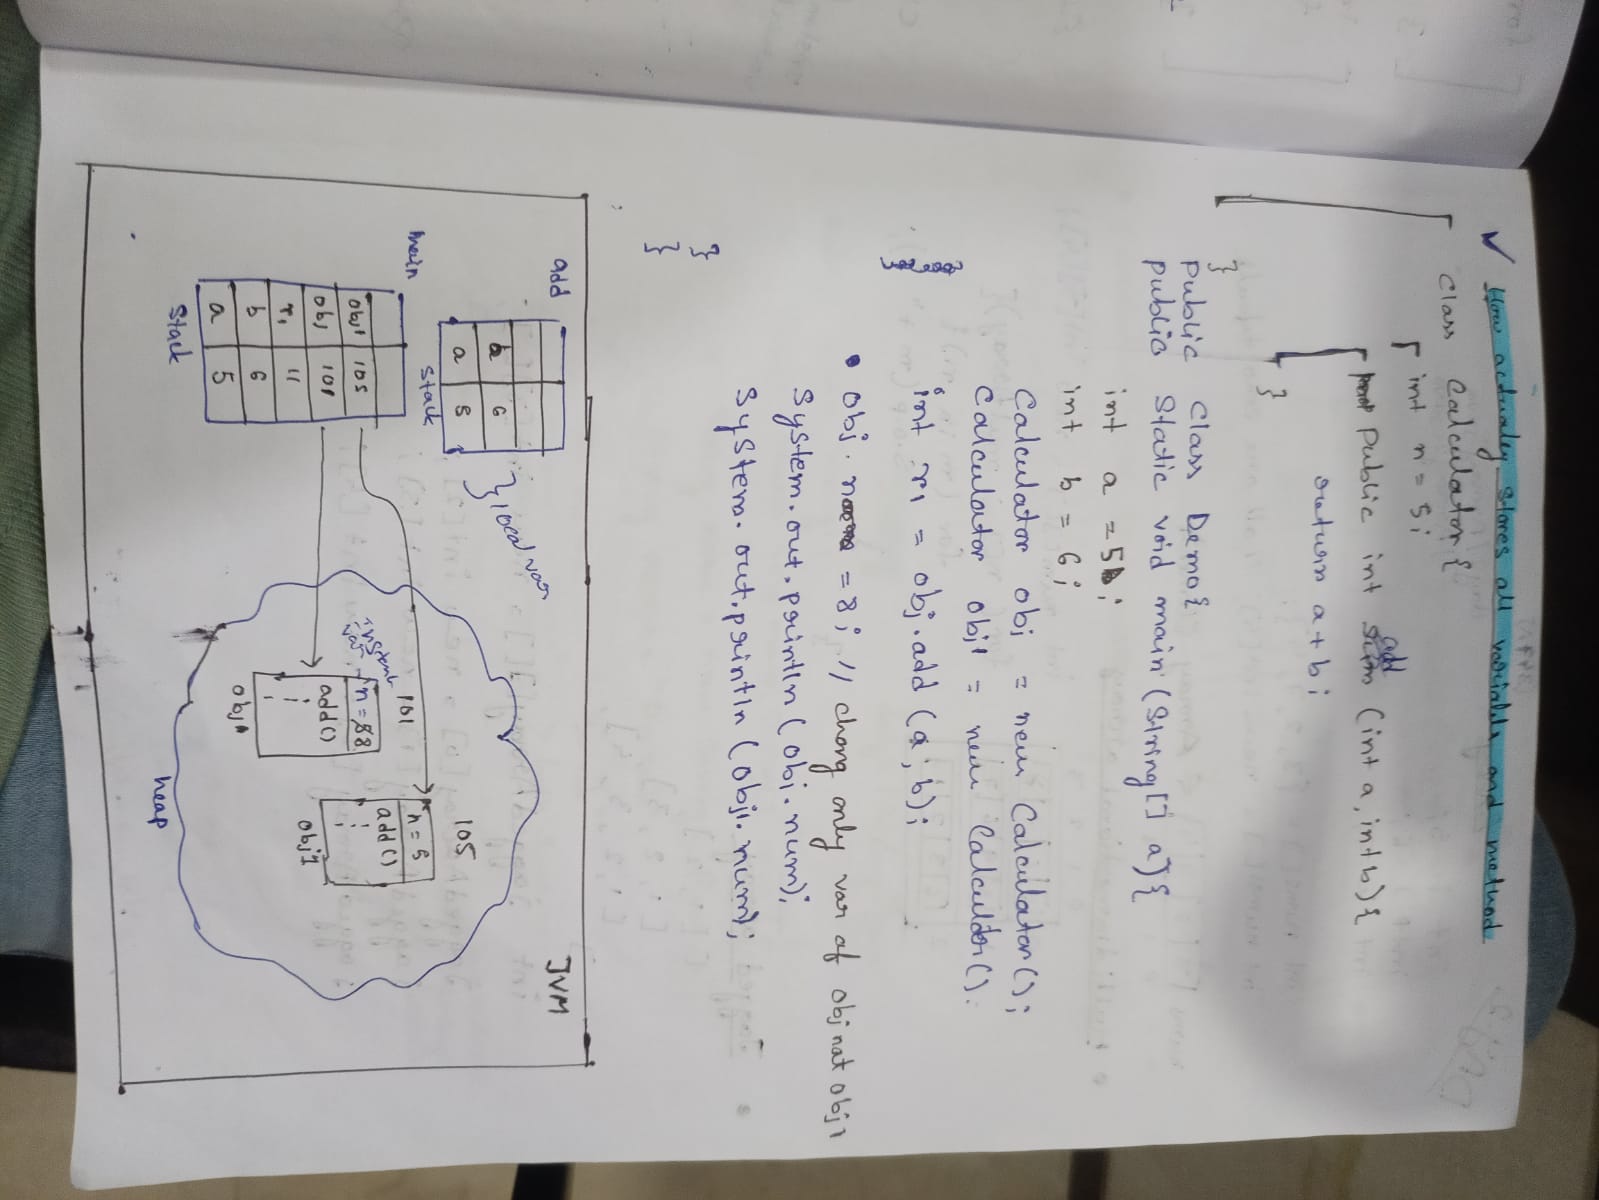 How actualey stores all variable and method
class Calculator {
int n = 5;
public int add (int a, int b) {
return a + b;
}
}
public class Demo {
public static void main (String [] a) {
int a = 5;
int b = 6;
Calculator obj = new Calculator ();
Calculator obj1 = new Calculator ().
int r1 = obj.add (a, b);
obj. n = 8; // chang only var of obj not obj1
System.out.println (obj.num);
System.out.println (obj1.num);
}
}
JVM
add
b 6
a 5
local var
Stack
main
obj1 105
obj 101
r1 11
b 6
a 5
Stack
105
n = 5
add ()
obj1
101
var
n = 8
add ()
obj
heap